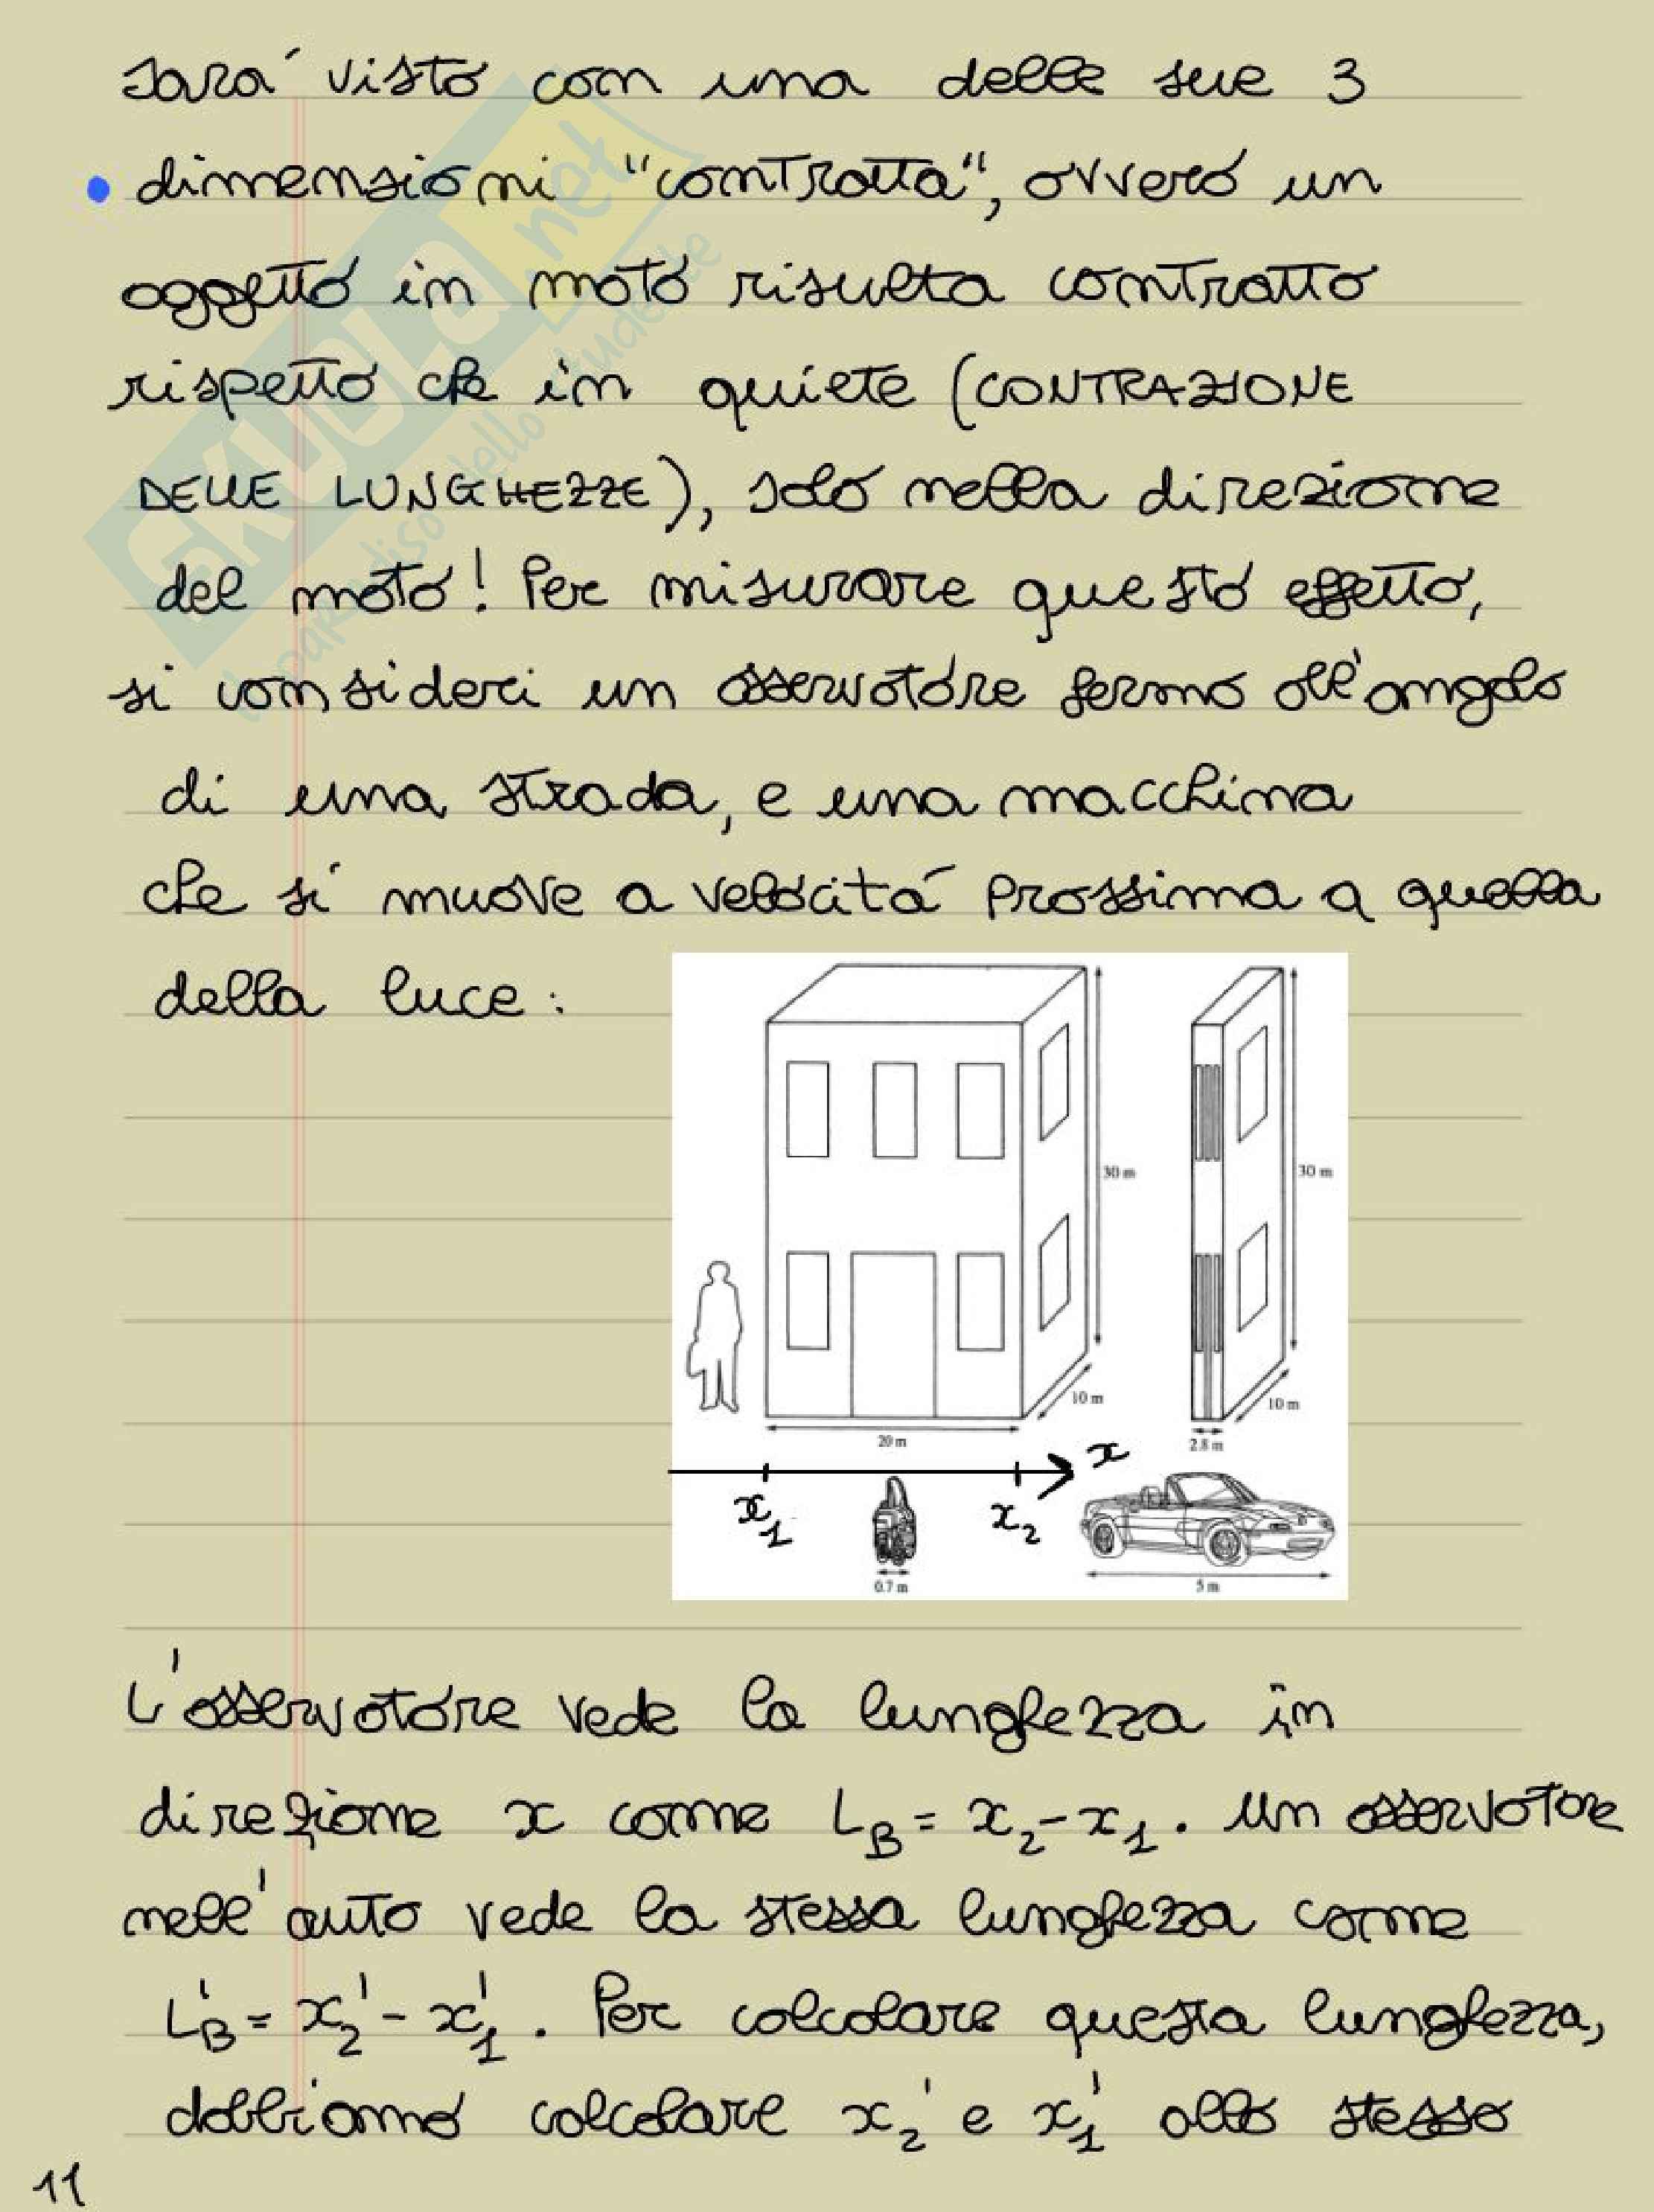 sarà visto con una delle sue 3
• dimensioni "contratta", ovvero un
oggetto in moto risulta contratto
rispetto che in quiete (CONTRAZIONE
DELLE LUNGHEZZE), solo nella direzione
del moto! Per misurare questo effetto,
si consideri un osservatore fermo all'angolo
di una strada, e una macchina
che si muove a velocità prossima a quella
della luce:
30 m
30 m
10 m
10 m
20 m
2.8 m
x
x₁
x₂
0.7 m
5 m
L'osservatore vede la lunghezza in
direzione x come L_B = x₂ - x₁. Un osservatore
nell'auto vede la stessa lunghezza come
L'_B = x₂' - x₁'. Per calcolare questa lunghezza,
dobbiamo calcolare x₂' e x₁' allo stesso
11
SKUOLA.net
il paradiso dello studente